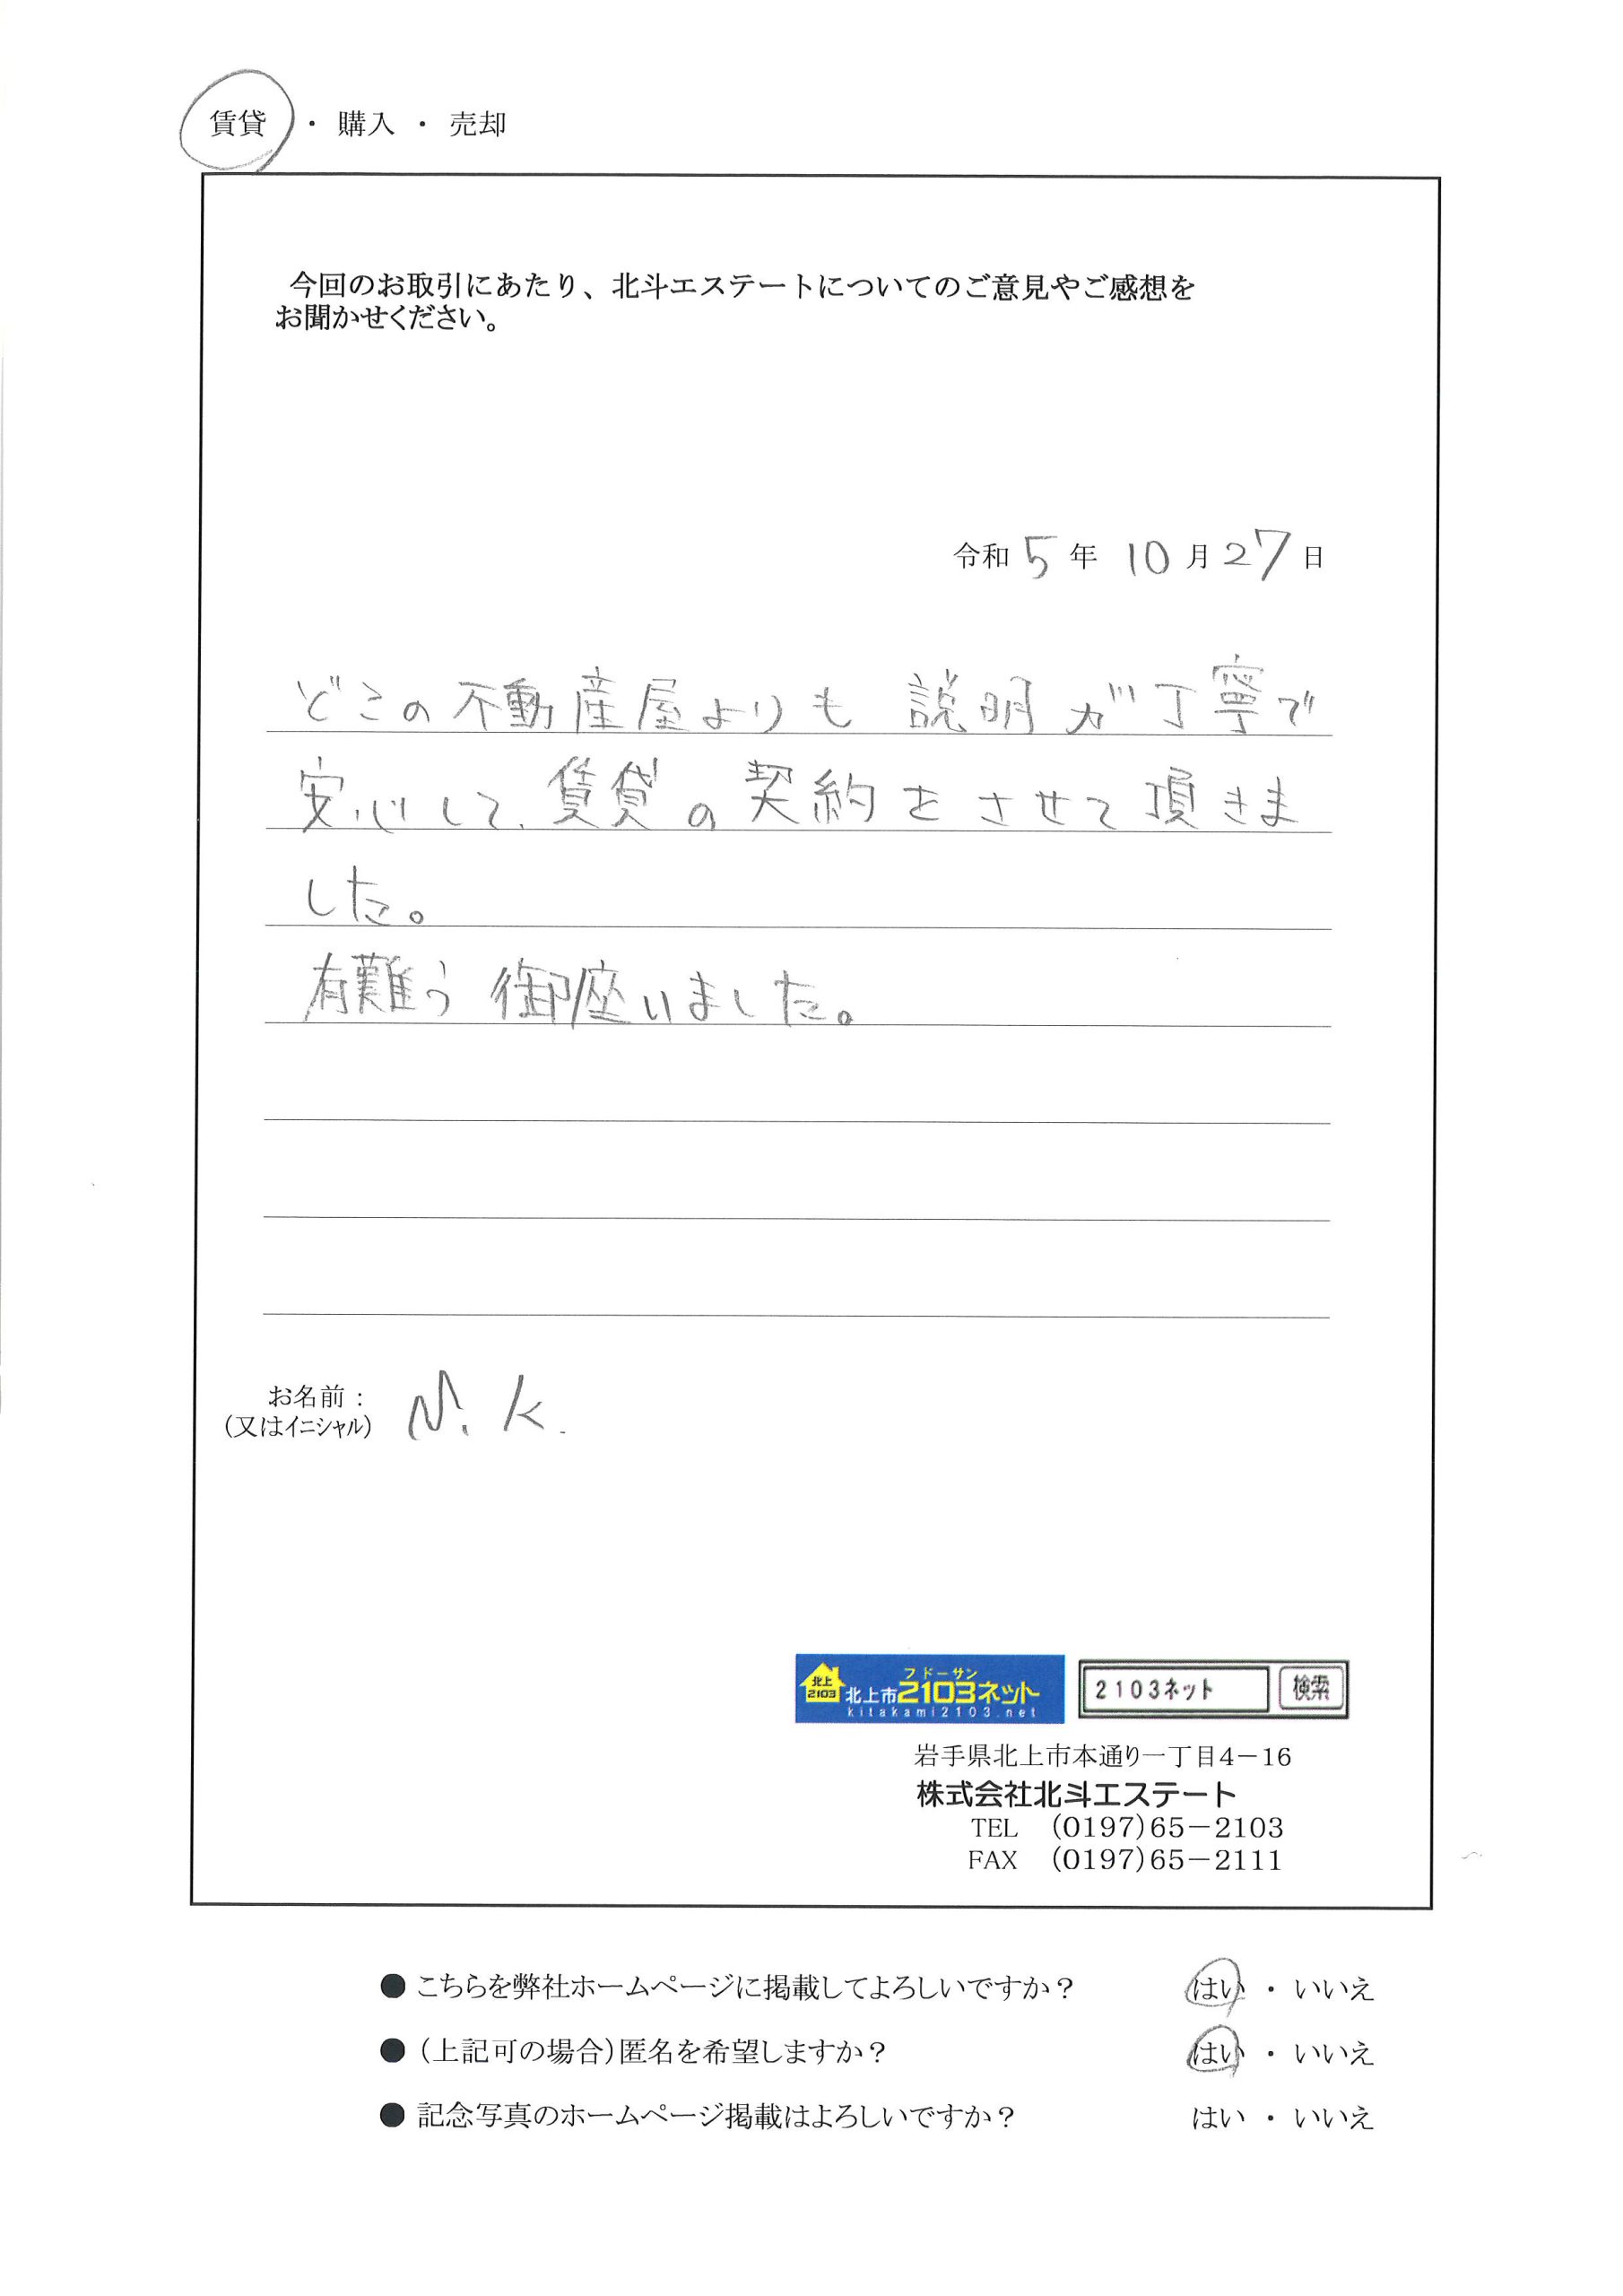 賃貸 ・ 購入 ・ 売却
今回のお取引にあたり、北斗エステートについてのご意見やご感想を
お聞かせください。
令和 5 年 10 月 27 日
どこの不動産屋よりも 説明が丁寧で
安心して、賃貸の契約をさせて頂きま
した。
有難う 御座いました。
お名前：
（又はイニシャル） N. K.
フドーサン
北上
2103
北上市2103ネット
kitakami2103.net
2103ネット 検索
岩手県北上市本通り一丁目4－16
株式会社北斗エステート
TEL （0197）65－2103
FAX （0197）65－2111
● こちらを弊社ホームページに掲載してよろしいですか？ はい ・ いいえ
● （上記可の場合）匿名を希望しますか？ はい ・ いいえ
● 記念写真のホームページ掲載はよろしいですか？ はい ・ いいえ